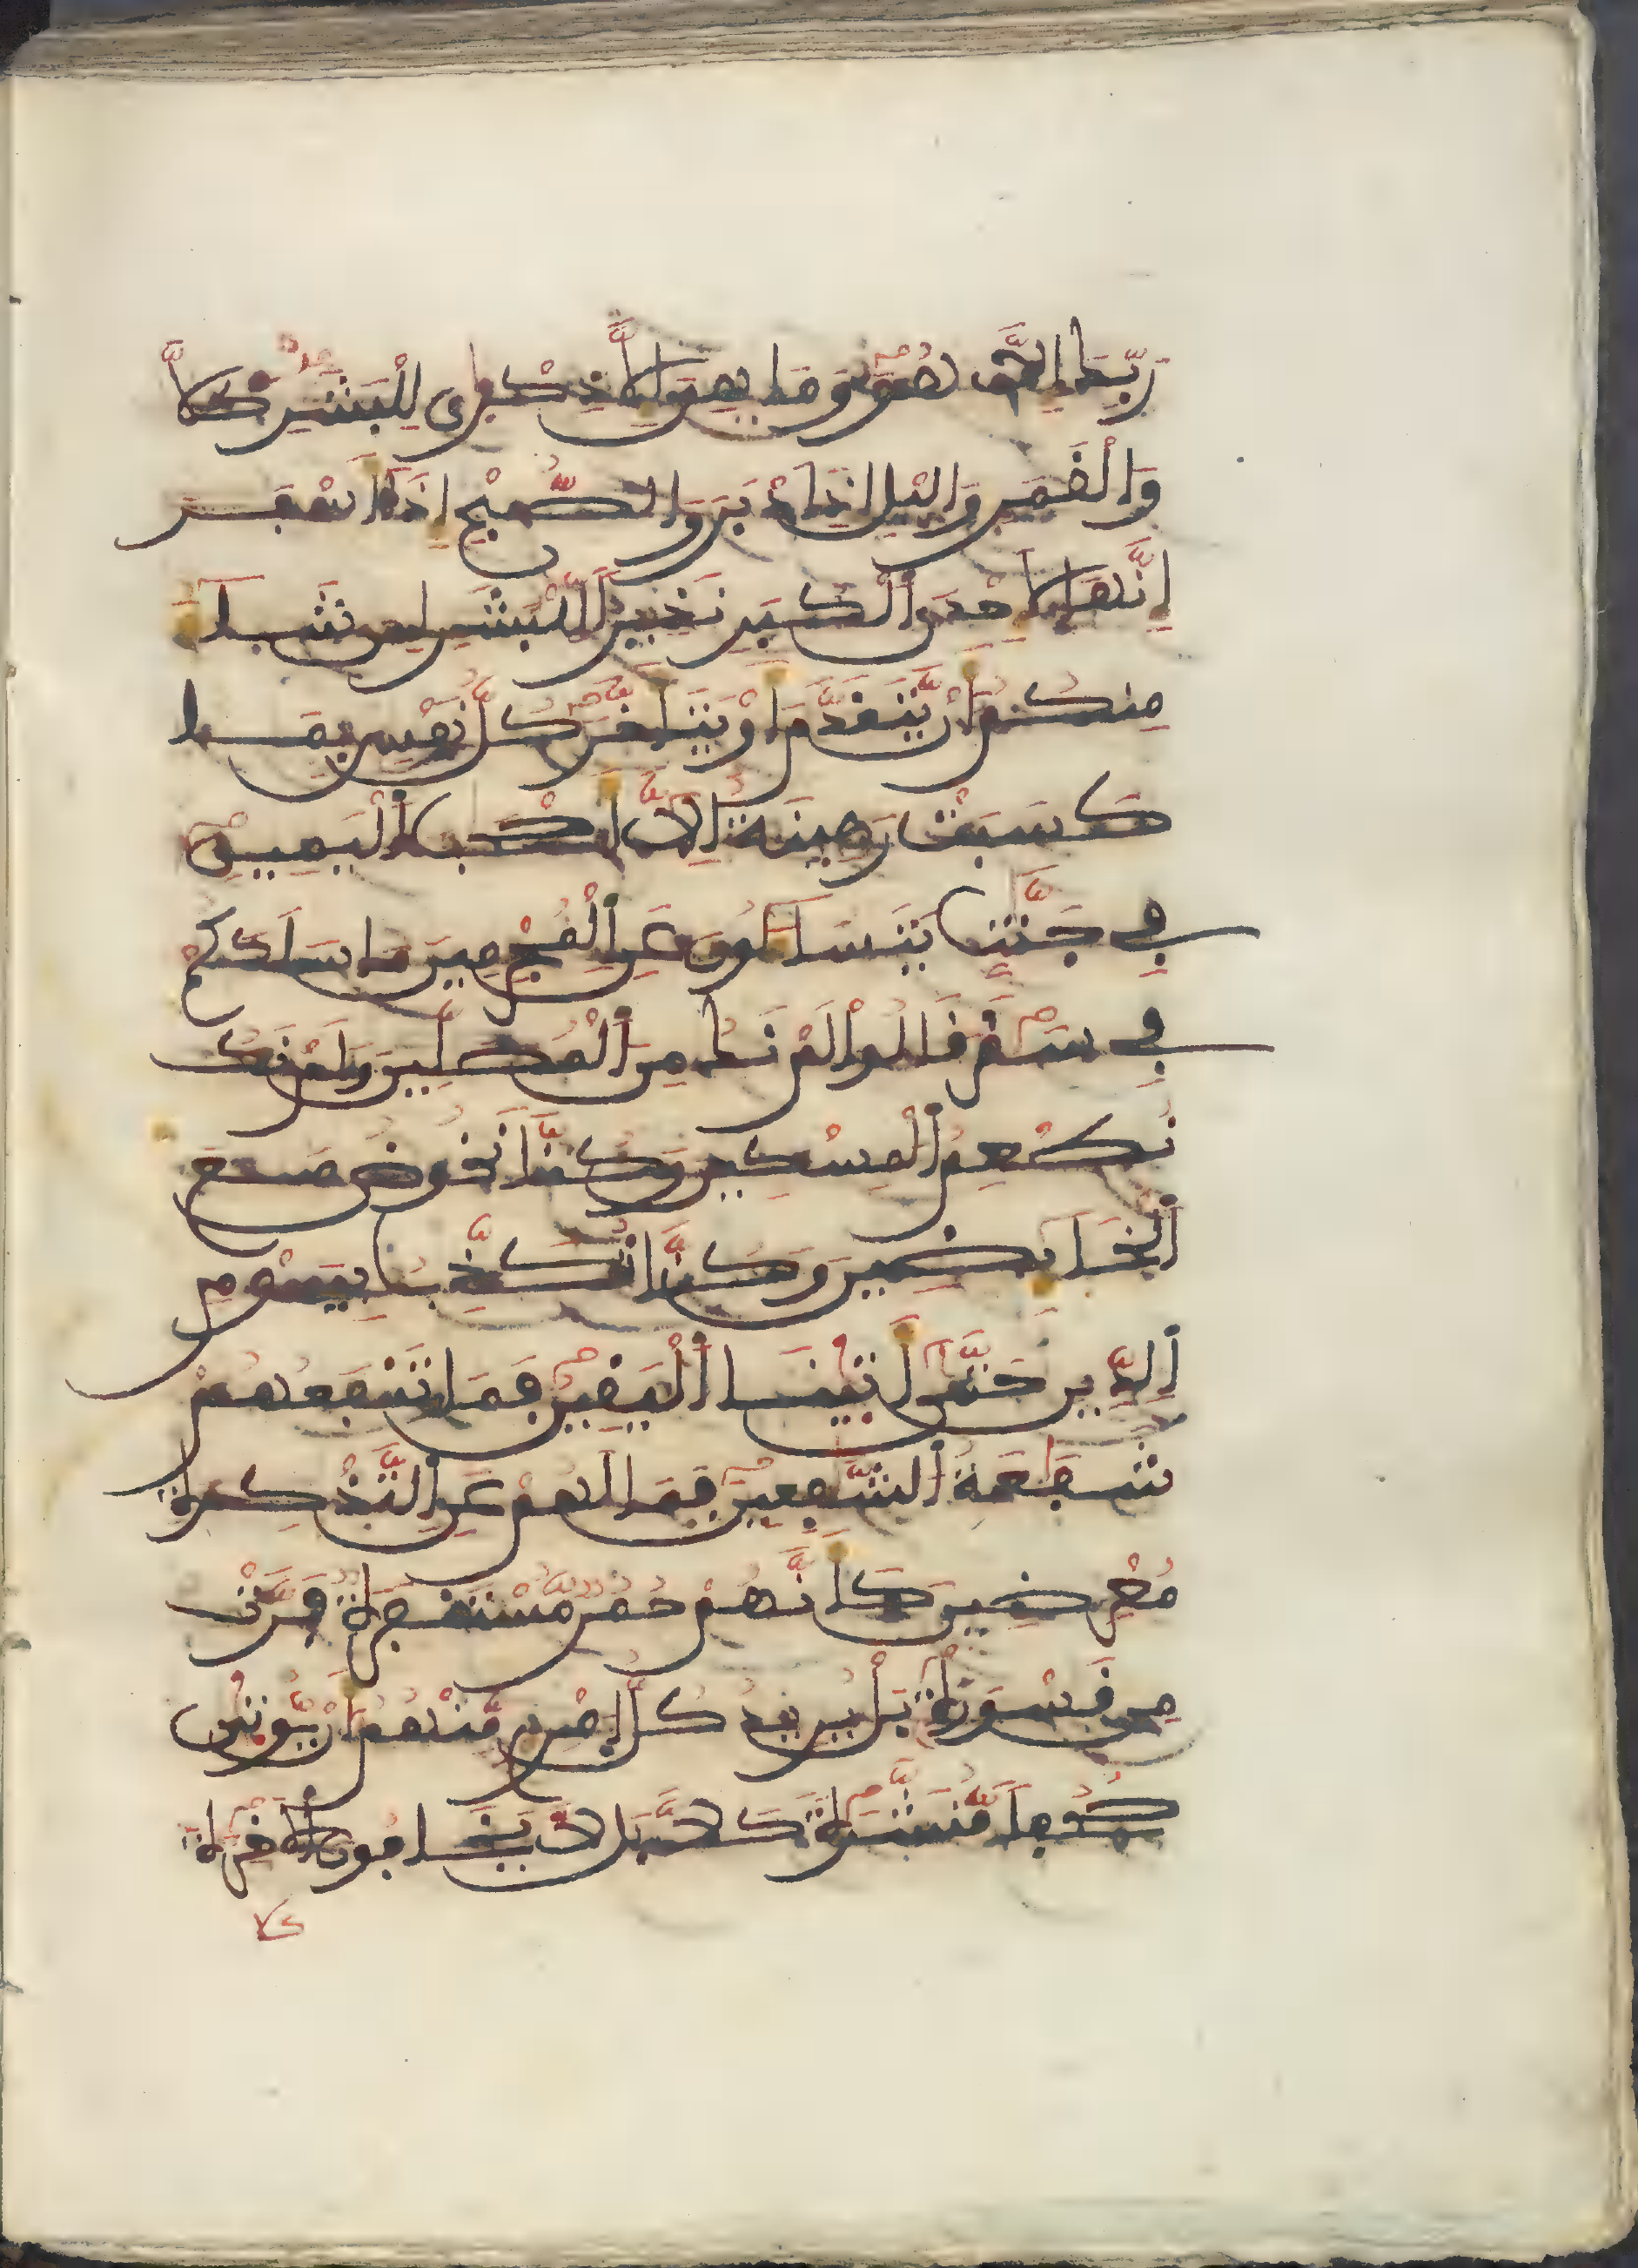 رَبِّكَ إِلَّا هُوَ وَمَا هِيَ إِلَّا ذِكْرٜى لِلْبَشَرِ كَلَّا
وَالْقَمَرِ وَاليْلِ إِذَ اَدْبَرَ وَالصُّبْحِ إِذَا أَسْفَرَ
إِنَّهَا لَإِحْدَى الْكُبَرِ نَذِيرًا لِّلْبَشَرِ لِمَن شَآءَ
مِنكُمُ أَنْ يَّتَقَدَّمَ أَوْ يَتَأَخَّرَ كُلُّ نَفْسٍ بِمَا
كَسَبَتْ رَهِينَةٌ إِلَّا أَصْحَٰبَ الْيَمِينِ
فِي جَنَّٰتٍ يَتَسَآءَلُونَ عَنِ الْمُجْرِمِينَ مَا سَلَكَكُمْ
فِي سَقَرَ قَالُوا لَمْ نَكُ مِنَ الْمُصَلِّينَ وَلَمْ نَكُ
نُطْعِمُ الْمِسْكِينَ وَكُنَّا نَخُوضُ مَعَ
الْخَآئِضِينَ وَكُنَّا نُكَذِّبُ بِيَوْمِ
الدِّينِ حَتَّىٰ أَتَيٰنَا الْيَقِينُ فَمَا تَنفَعُهُمْ
شَفَٰعَةُ الشَّٰفِعِينَ فَمَا لَهُمْ عَنِ التَّذْكِرَةِ
مُعْرِضِينَ كَأَنَّهُمْ حُمُرٌ مُّسْتَنفَرَةٌ فَرَّتْ
مِن قَسْوَرَةٍ بَلْ يُرِيدُ كُلُّ امْرِئٍ مِّنْهُمُ أَنْ يُّوتٜىٰ
صُحُفًا مُّنَشَّرَةً كَلَّا بَل لَّا يَخَافُونَ الْأَخِرَةَ
كلا